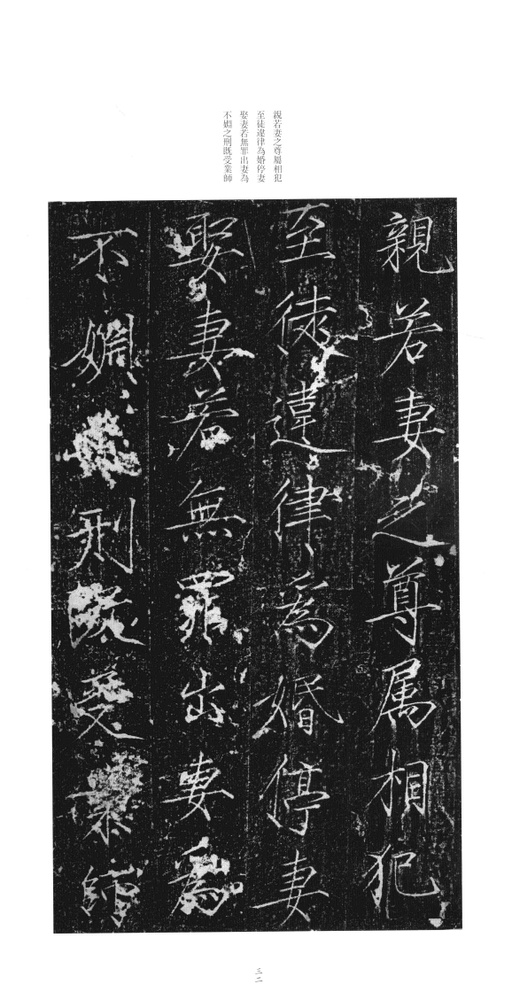 親若妻之尊屬相犯
至徒違律為婚停妻
娶妻若無罪出妻為
不嫺之刑既受業師
親若妻之尊属相犯
至徒違律為婚停妻
娶妻若無罪出妻為
不嫺之刑既受業師
三二